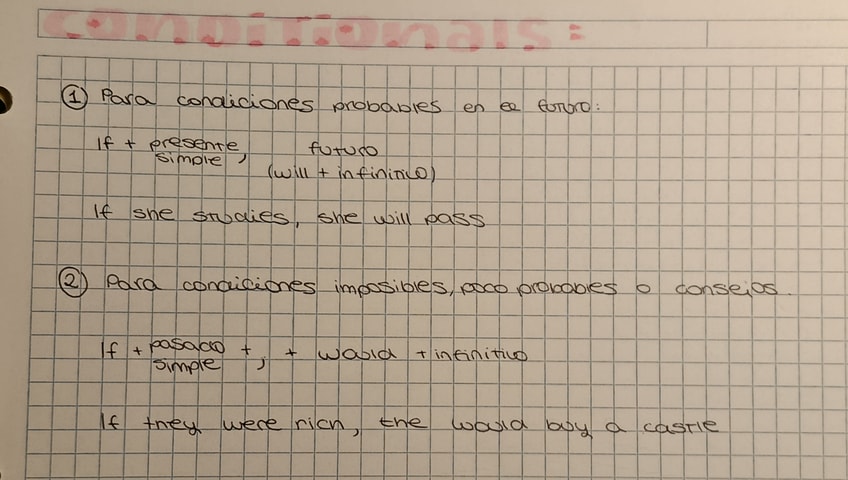 CONDITIONALS:
① Para condiciones probables en el futuro:
If + presente simple, futuro
(will + infinitivo)
If she studies, she will pass
② Para condiciones imposibles, poco probables o consejos.
If + pasado simple +, + would + infinitivo
If they were rich, the would buy a castle